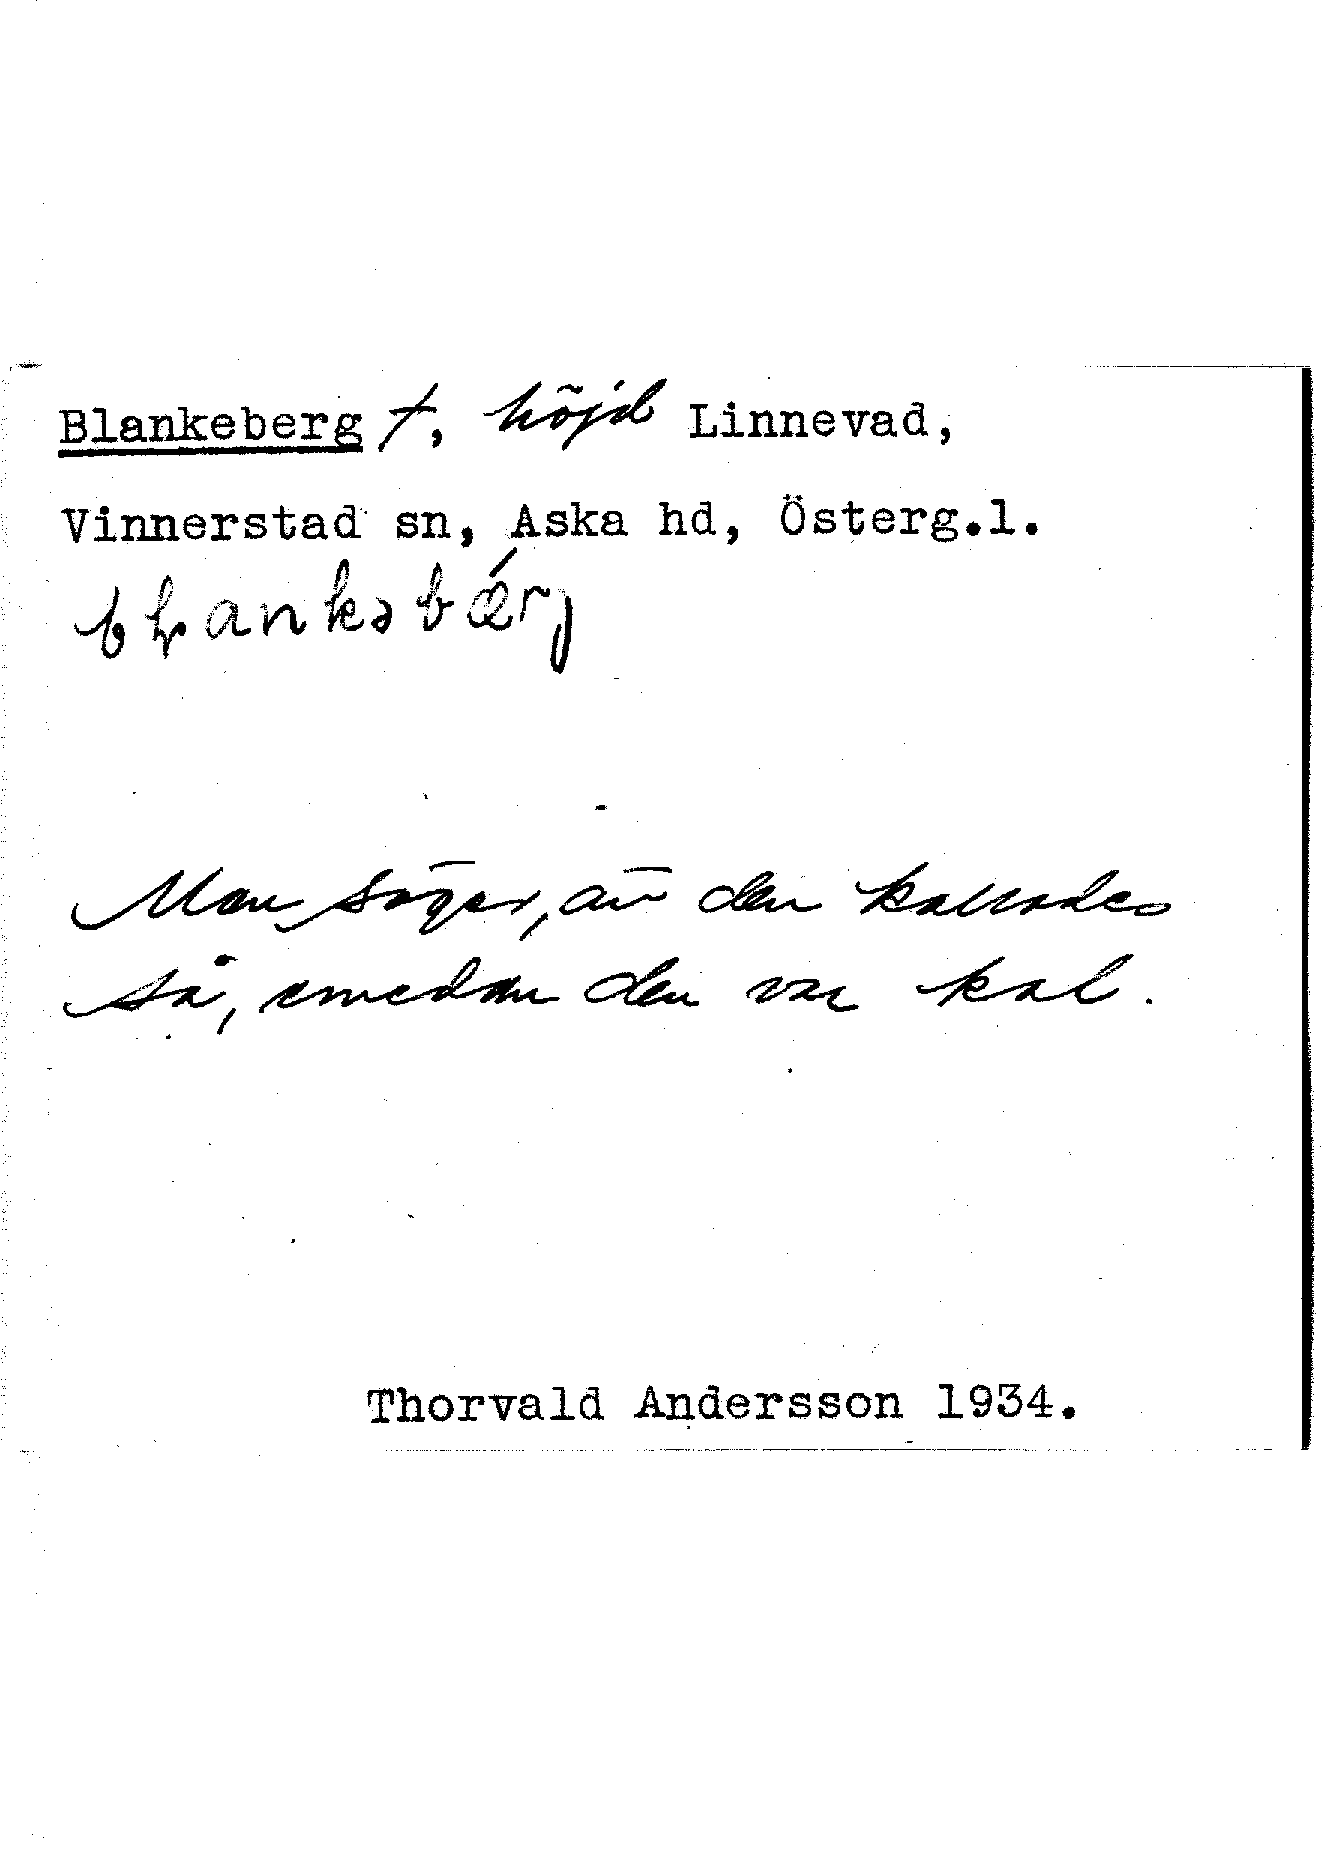 Blankeberg †, höjd Linnevad,
Vinnerstad sn, Aska hd, Österg.l.
Man säger, att den kallades
så, emedan den var kal.
Thorvald Andersson 1934.